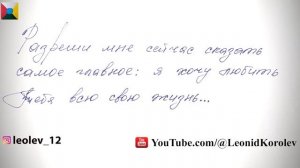 Разреши мне сейчас сказать
самое главное: я хочу любить
тебя всю свою жизнь...
leolev_12
YouTube.com/@LeonidKorolev